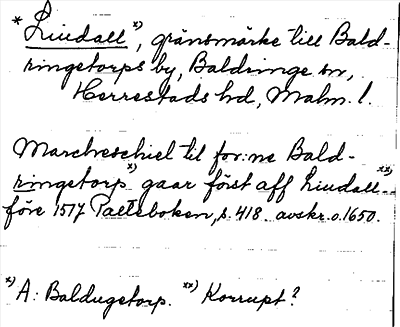 * Liudall x), gränsmärke till Bald-
ringetorps by, Baldringe sn,
Herrestads hd, Malm. l.
Marckeschiel til for:ne Bald-
ringetorp x) gaar först aff Liudall xx) -
före 1517 Palteboken, s. 418 avskr. o. 1650.
x) A: Baldugetorp. xx) Korrupt?